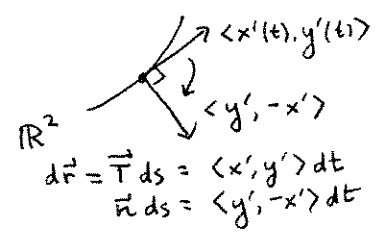 <x'(t), y'(t)>
<y', -x'>
ℝ²
dr⃗ = T⃗ ds = <x', y'> dt
n⃗ ds = <y', -x'> dt